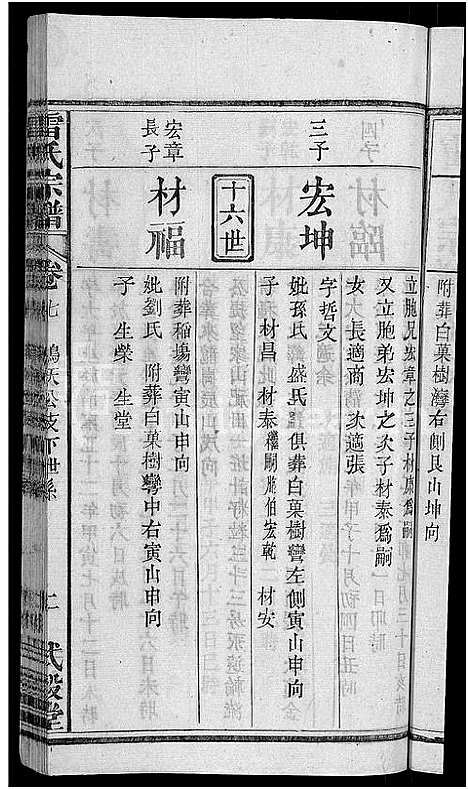 附葬白菓樹灣右側艮山坤向
立胞兄宏章之三子材康爲嗣
又立胞弟宏坤之次子材泰爲嗣
女 大長適商 次適張
三子
宏坤
字哲文
妣孫氏 盛氏 俱葬白菓樹彎左側寅山申向
子 材昌 材泰繼嗣胞伯宏乾 材安
十六世
宏章長子
材福
附葬稻塲彎寅山申向
妣劉氏 附葬白菓樹彎中右寅山申向
子 生榮 生堂
雷氏宗譜
卷七
公支下世系
二